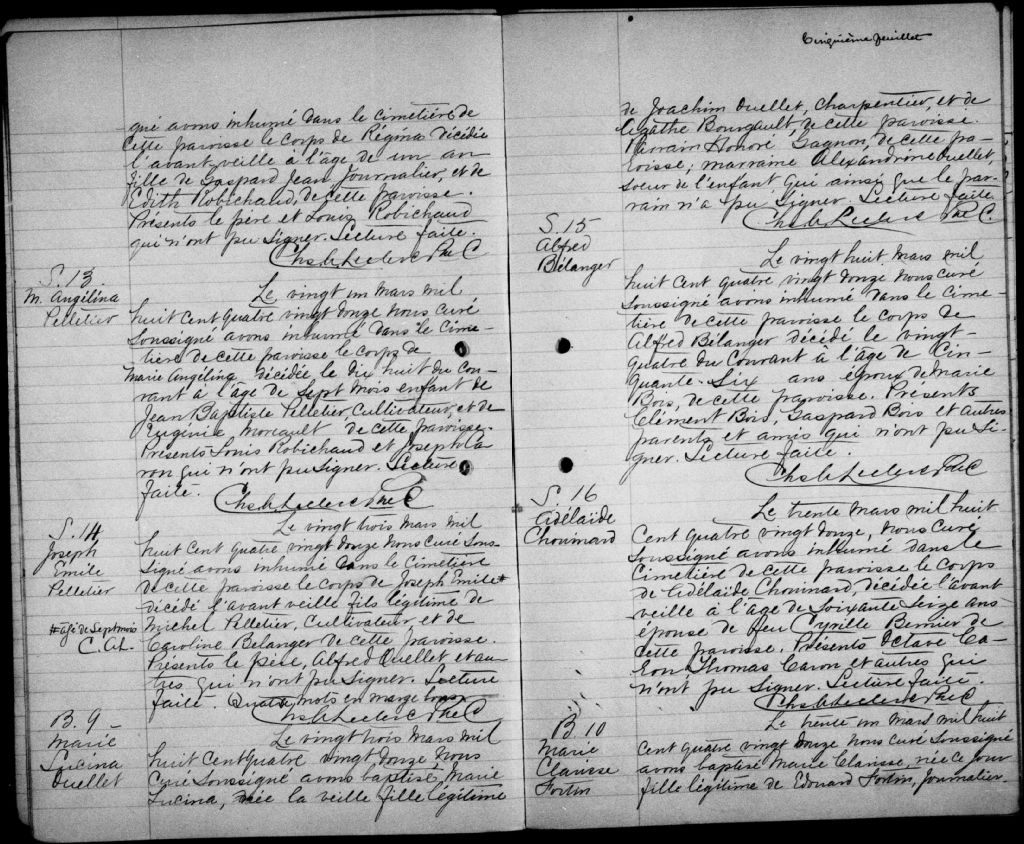 qué avons inhumé dans le cimetière de
cette paroisse le corps de Régina décédée
l'avant veille à l'âge de un an
fille de Gaspard Jean Journalier, et de
Edith Robichaud, de cette paroisse.
Présents le père et Louis Robichaud
qui n'ont pu signer. Lecture faite.
Chs. Leclerc Ptre C
S. 13
M. Angélina
Pelletier
Le vingt un mars mil
huit cent quatre vingt douze nous curé
soussigné avons inhumé dans le cime-
tière de cette paroisse le corps de
Marie Angélina décédée le dix huit du cou-
rant à l'âge de sept mois enfant de
Jean Baptiste Pelletier, Cultivateur, et de
Eugénie Moreault de cette paroisse.
Présents Louis Robichaud et Joseph Ca-
ron qui n'ont pu signer. Lecture
faite.
Chs. Leclerc Ptre C
S. 14
Joseph
Emile
Pelletier
# âgé de sept mois
C. A. L.
Le vingt trois mars mil
huit cent quatre vingt douze nous curé sous-
signé avons inhumé dans le cimetière
de cette paroisse le corps de Joseph Emile #
décédé l'avant veille fils légitime de
Michel Pelletier, Cultivateur, et de
Caroline Belanger de cette paroisse.
Présents le père, Alfred Ouellet et au-
tres qui n'ont pu signer. Lecture
faite. Quatre mots en marge bons
Chs. Leclerc Ptre C
B. 9 -
Marie
Lucina
Ouellet
Le vingt trois mars mil
huit cent quatre vingt douze nous
curé soussigné avons baptisé Marie
Lucina, née la veille fille légitime
Cinquième feuillet
de Joachim Ouellet, charpentier, et de
Agathe Bourgault, de cette paroisse.
Parrain Honoré Gagnon, de cette pa-
roisse; marraine Alexandrine Ouellet,
soeur de l'enfant qui ainsi que le par-
rain n'a pu signer. Lecture faite.
Chs. Leclerc Ptre C.
S. 15
Alfred
Bélanger
Le vingt huit mars mil
huit cent quatre vingt douze nous curé
soussigné avons inhumé dans le cime-
tière de cette paroisse le corps de
Alfred Bélanger décédé le vingt-
quatre du courant à l'âge de cin-
quante-six ans époux de Marie
Bois, de cette paroisse. Présents
Clément Bois, Gaspard Bois et autres
parents et amis qui n'ont pu si-
gner. Lecture faite.
Chs. Leclerc Ptre C
S. 16
Adélaïde
Chouinard
Le trente mars mil huit
cent quatre vingt douze, nous curé
soussigné avons inhumé dans le
cimetière de cette paroisse le corps
de Adélaïde Chouinard, décédée l'avant
veille à l'âge de soixante seize ans
épouse de feu Cyrille Bernier de
cette paroisse. Présents Octave Ca-
ron, Thomas Caron et autres qui
n'ont pu signer. Lecture faite.
Chs. Leclerc Ptre C
B. 10
Marie
Clarisse
Fortin
Le trente un mars mil huit
cent quatre vingt douze nous curé soussigné
avons baptisé Marie Clarisse, née ce jour
fille légitime de Edouard Fortin, journalier